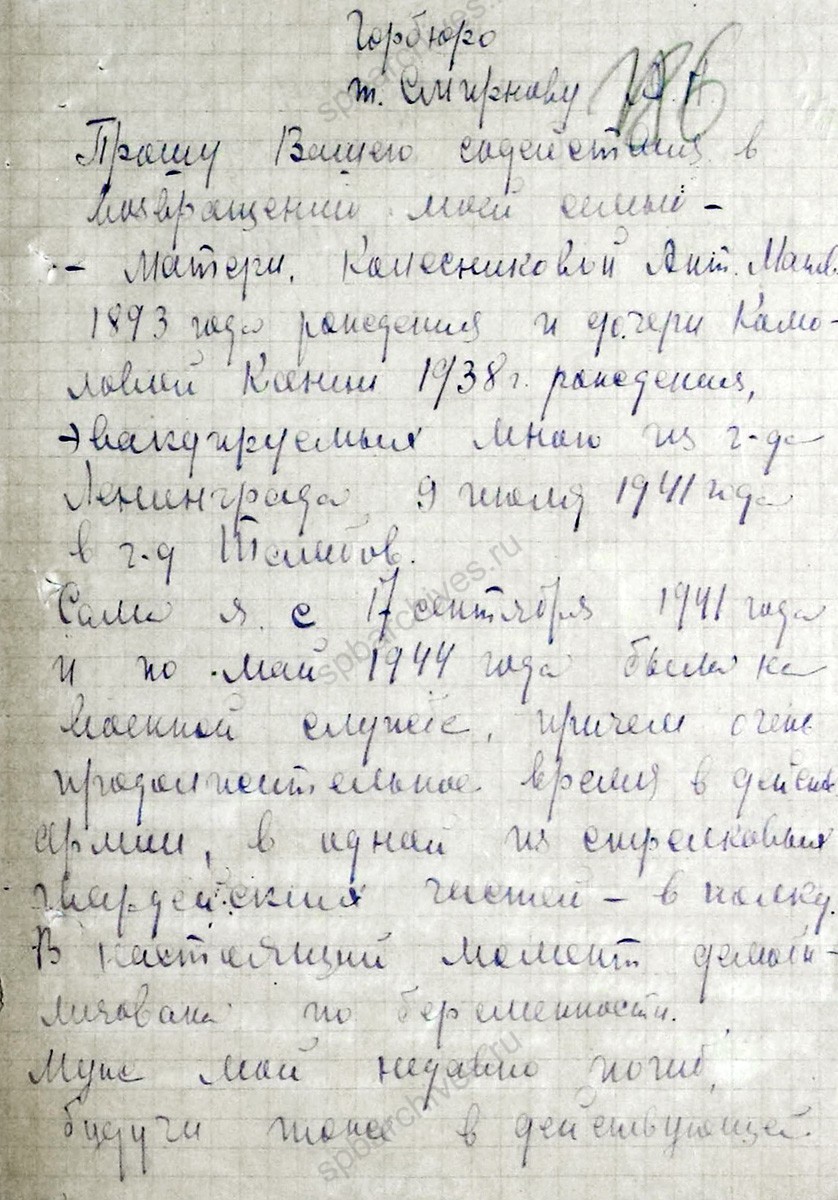 Горбюро
т. Смирнову
186
Прошу Вашего содействия в
возвращении моей семьи –
– матери, Колесниковой Ант.
1893 года рождения и дочери Камо-
ловой 1938 г. рождения,
эвакуируемых мною из г-да
Ленинграда 9 июля 1941 года
в г-д
Сама я с 17 сентября 1941 года
и по май 1944 года была на
военной службе, причем очень
продолжительное время в действ.
армии, в одной из стрелковых
гвардейских частей – в полку.
В настоящий момент демоби-
лизована по беременности.
Муж мой недавно погиб,
будучи тоже в действующей
spbarchives.ru
spbarchives.ru
spbarchives.ru